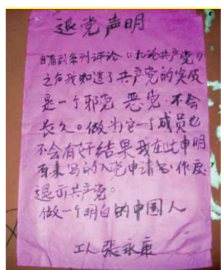 退党声明
自看就系列评论《九论共产党》
之后我知道了共产党的发展
是一个邪党 恶党 不会
长久。做为它一丁成员也
不会有好结果我在此申明
有来写的入党申请书作废
退出共产党。
做一个明白的中国人
工人 张永康